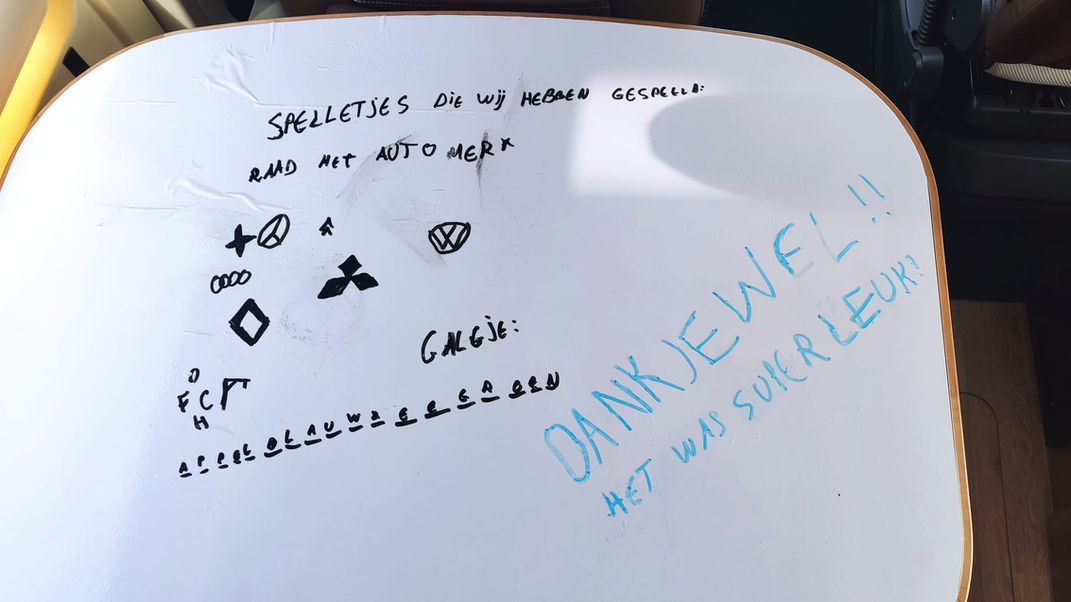 SPELLETJES DIE WIJ HEBBEN GESPEELD:
RAAD HET AUTO MERK
GALGJE:
O
F C
H
DANKJEWEL!!
HET WAS SUPER LEUK!